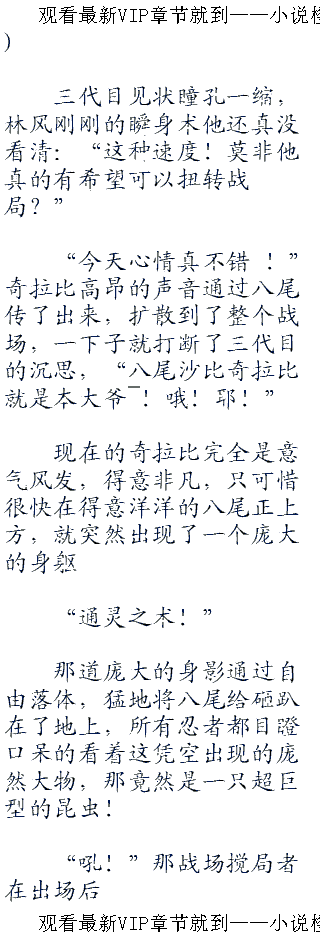 观看最新VIP章节就到——小说
)
三代目见状瞳孔一缩，
林风刚刚的瞬身术他还真没
看清：“这种速度！莫非他
真的有希望可以扭转战
局？”
“今天心情真不错 ！”
奇拉比高昂的声音通过八尾
传了出来，扩散到了整个战
场，一下子就打断了三代目
的沉思，“八尾沙比奇拉比
就是本大爷¯！哦！耶！”
现在的奇拉比完全是意
气风发，得意非凡，只可惜
很快在得意洋洋的八尾正上
方，就突然出现了一个庞大
的身躯
“通灵之术！”
那道庞大的身影通过自
由落体，猛地将八尾给砸趴
在了地上，所有忍者都目瞪
口呆的看着这凭空出现的庞
然大物，那竟然是一只超巨
型的昆虫！
“吼！”那战场搅局者
在出场后
观看最新VIP章节就到——小说